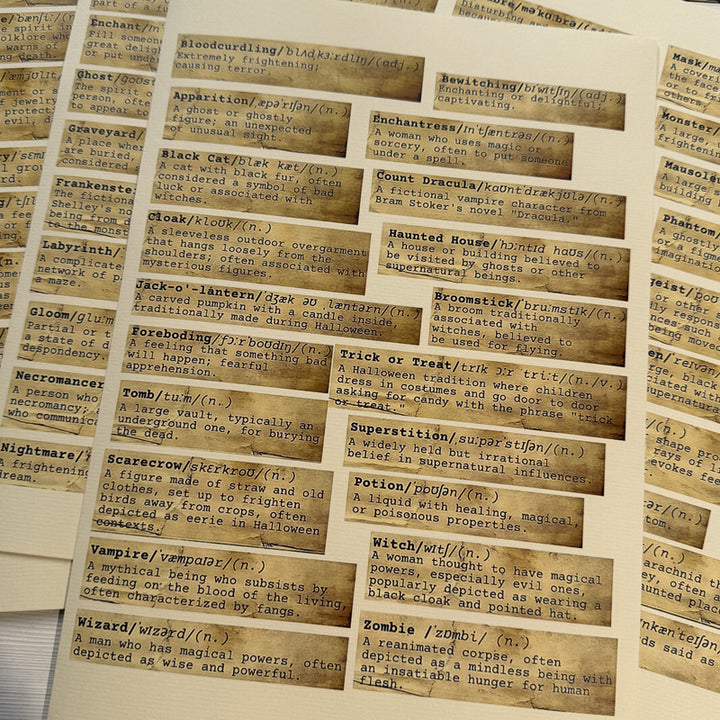 Bloodcurdling/ˈblʌdˌkɜːrdlɪŋ/(adj.)
Extremely frightening;
causing terror.
Apparition/ˌæpəˈrɪʃən/(n.)
A ghost or ghostly
figure; an unexpected
of unusual sight.
Black Cat/blæk kæt/(n.)
A cat with black fur, often
considered a symbol of bad
luck or associated with
witches.
Cloak/kloʊk/(n.)
A sleeveless outdoor overgarment
that hangs loosely from the
shoulders; often associated with
mysterious figures.
Jack-o'-lantern/ˈdʒæk əʊ ˌlæntərn/(n.)
A carved pumpkin with a candle inside,
traditionally made during Halloween.
Foreboding/fɔːrˈboʊdɪŋ/(n.)
A feeling that something bad
will happen; fearful
apprehension.
Tomb/tuːm/(n.)
A large vault, typically an
underground one, for burying
the dead.
Scarecrow/skɛrkroʊ/(n.)
A figure made of straw and old
clothes, set up to frighten
birds away from crops, often
depicted as eerie in Halloween
contexts.
Vampire/ˈvæmpaɪər/(n.)
A mythical being who subsists by
feeding on the blood of the living,
often characterized by fangs.
Wizard/ˈwɪzərd/(n.)
A man who has magical powers, often
depicted as wise and powerful.
Bewitching/bɪˈwɪtʃɪŋ/(adj.)
Enchanting or delightful;
captivating.
Enchantress/ɪnˈtʃæntrəs/(n.)
A woman who uses magic or
sorcery, often to put someone
under a spell.
Count Dracula/kaʊntˈdrækjʊlə/(n.)
A fictional vampire character from
Bram Stoker's novel "Dracula."
Haunted House/ˈhɔːntɪd haʊs/(n.)
A house or building believed to
be visited by ghosts or other
supernatural beings.
Broomstick/ˈbruːmstɪk/(n.)
A broom traditionally
associated with
witches, believed to
be used for flying.
Trick or Treat/trɪk ɔːr ˈtriːt/(n./v.)
A Halloween tradition where children
dress in costumes and go door to door
asking for candy with the phrase "trick
or treat."
Superstition/ˌsuːpərˈstɪʃən/(n.)
A widely held but irrational
belief in supernatural influences.
Potion/ˈpoʊʃən/(n.)
A liquid with healing, magical,
or poisonous properties.
Witch/wɪtʃ/(n.)
A woman thought to have magical
powers, especially evil ones,
popularly depicted as wearing a
black cloak and pointed hat.
Zombie /ˈzɒmbi/ (n.)
A reanimated corpse, often
depicted as a mindless being with
an insatiable hunger for human
flesh.
Ghost/
The spirit
person, often
to appear to
Graveyard/
A place where
are buried,
considered
Frankenste
The fictiona
Shelley's no
being from d
the monst
Labyrinth/
A complicate
network of p
a maze.
Gloom/
Partial or t
a state of d
despondency.
Necromancer
A person who
necromancy;
who communica
Nightmare/
A frightening
dream.
Mask/
A coverin
the face
or to fri
others.
Monster/
A large,
frightenin
Mausol
A large
building
Phantom/
A ghostly
imagination